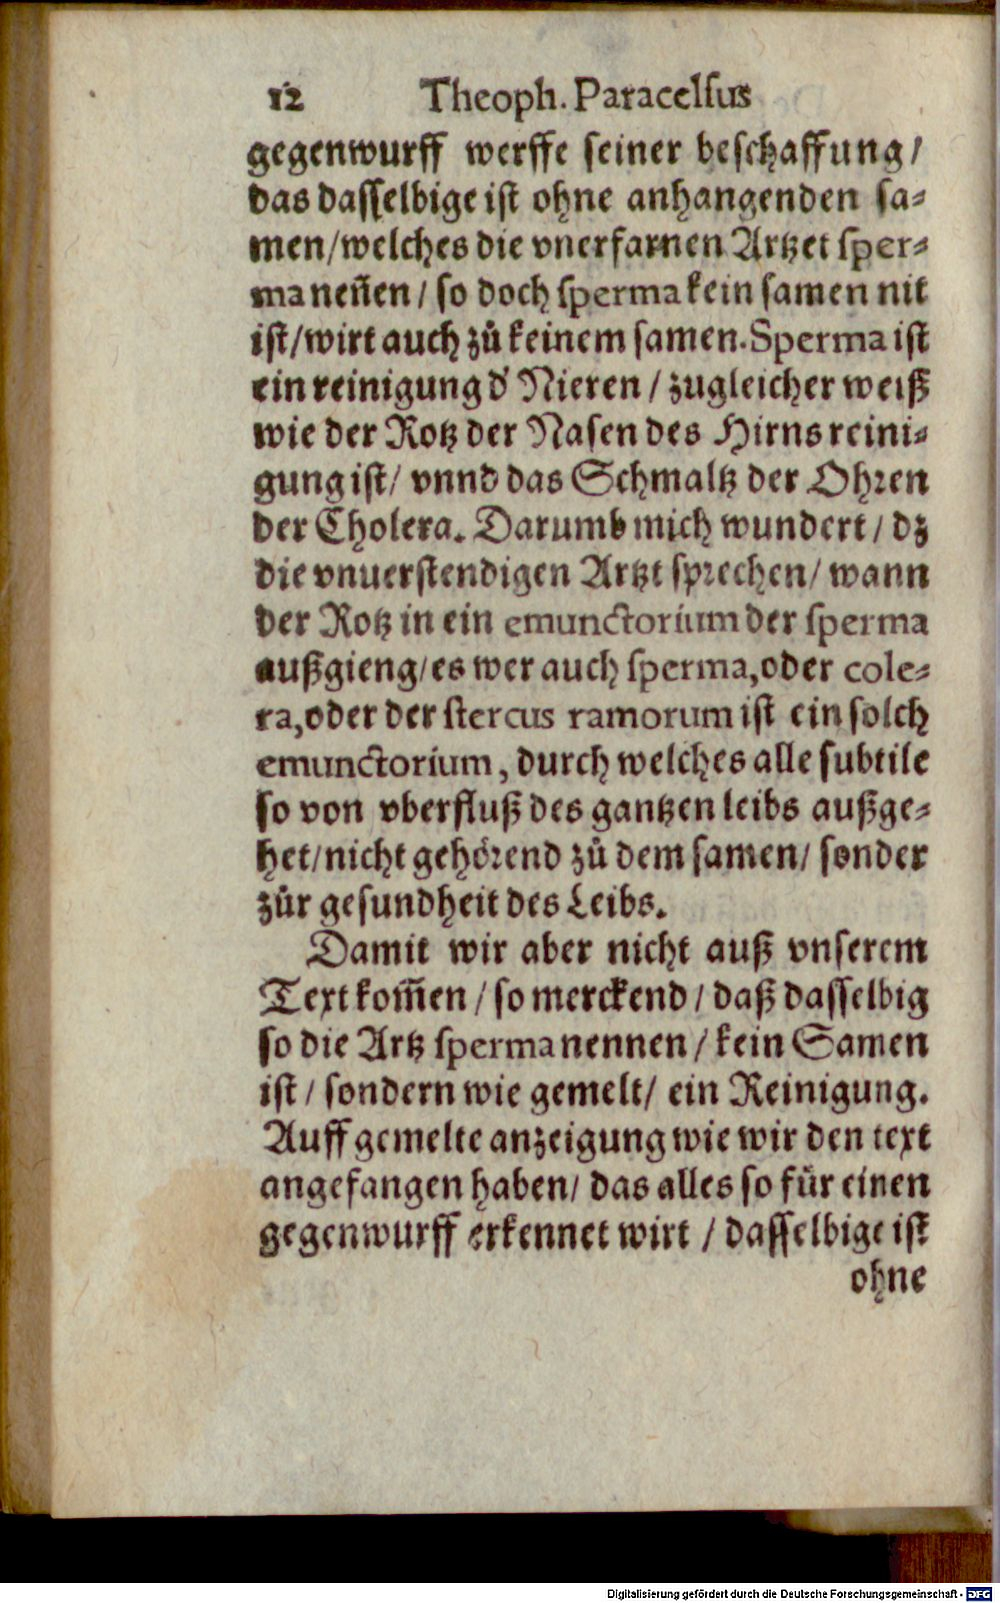 12 Theoph. Paracelsus
gegenwurff werffe seiner beschaffung/
das dasselbige ist ohne anhangenden sa-
men/welches die vnerfarnen Artzet sper-
ma neñen/ so doch sperma kein samen nit
ist/wirt auch zů keinem samen. Sperma ist
ein reinigung d' Nieren / zugleicher weiß
wie der Rotz der Nasen des Hirns reini-
gung ist/ vnnd das Schmaltz der Ohren
der Cholera. Darumb mich wundert/ dz
die vnuerstendigen Artzt sprechen/ wann
der Rotz in ein emunctorium der sperma
außgieng/es wer auch sperma, oder cole-
ra, oder der stercus ramorum ist ein solch
emunctorium, durch welches alle subtile
so von vberfluß des gantzen leibs außge-
het/nicht gehörend zů dem samen/ sonder
zůr gesundheit des Leibs.
Damit wir aber nicht auß vnserem
Text kom̃en / so merckend/ daß dasselbig
so die Artz sperma nennen/ kein Samen
ist / sondern wie gemelt/ ein Reinigung.
Auff gemelte anzeigung wie wir den text
angefangen haben/ das alles so für einen
gegenwurff erkennet wirt / dasselbige ist
ohne
Digitalisierung gefördert durch die Deutsche Forschungsgemeinschaft - DFG